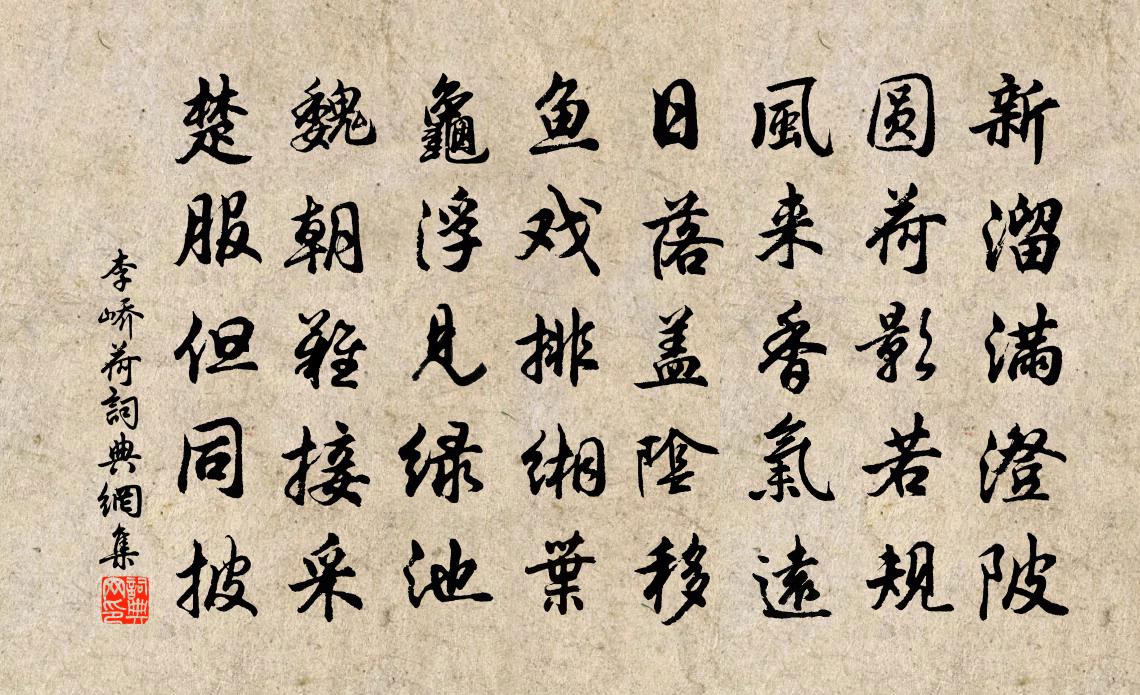 新溜满澄陂
圆荷影若规
風来香氣遠
日落盖陰移
鱼戏排缃葉
龜浮見绿池
魏朝難接采
楚服但同披
李峤荷詞典網集
詞典網印